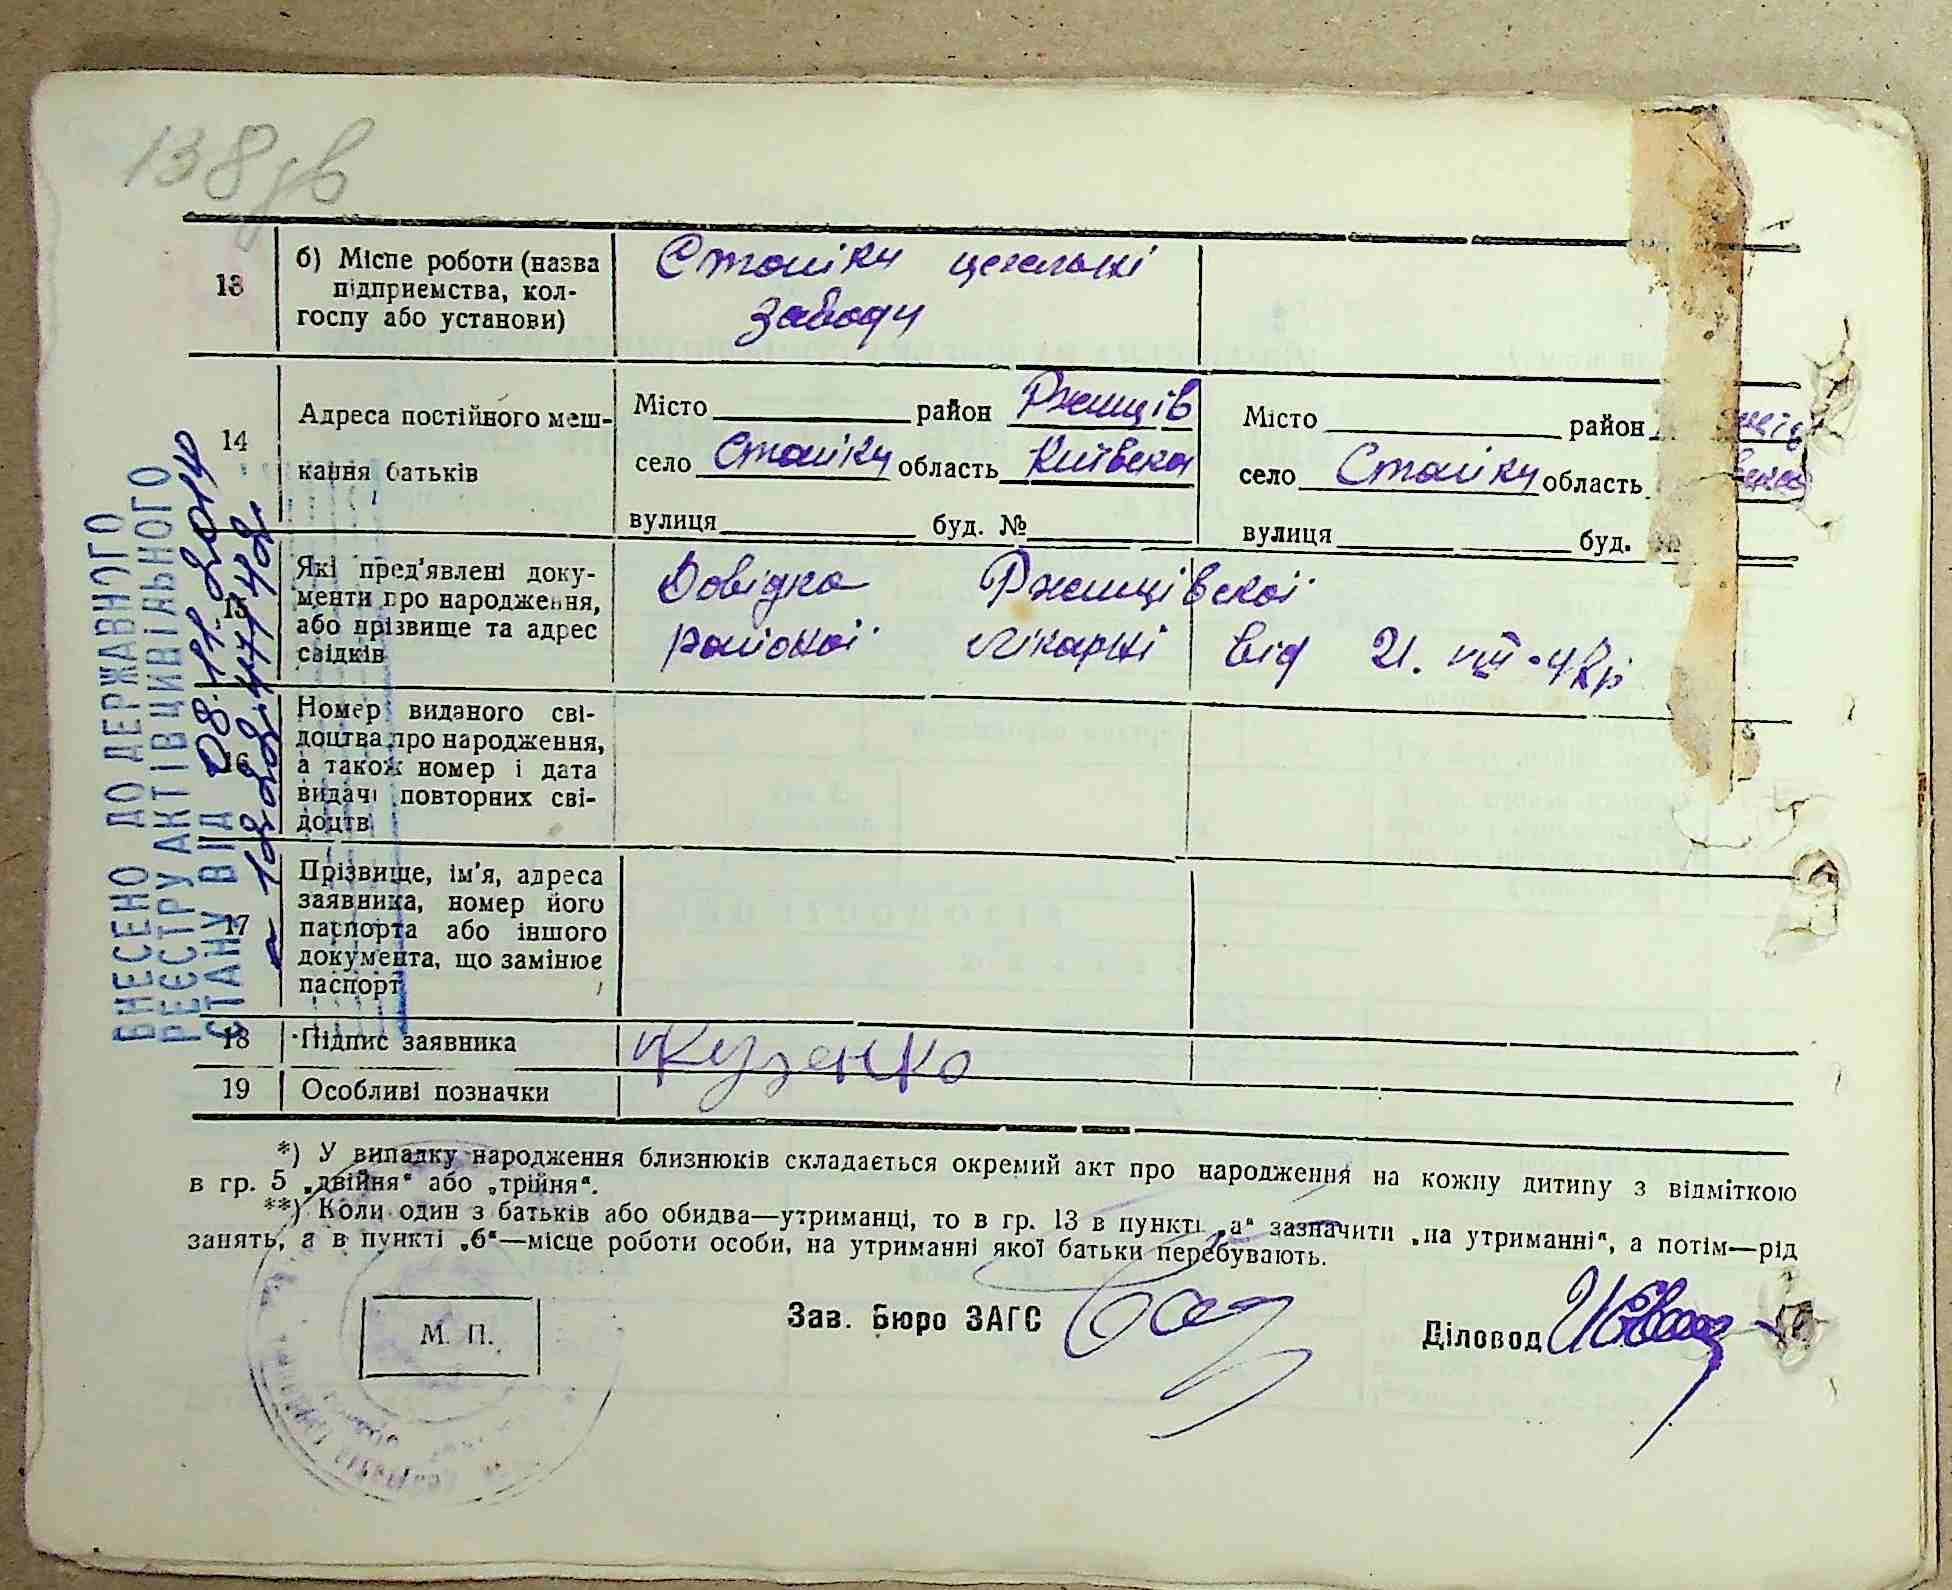 138 зв
13
б) Місце роботи (назва
підприємства, кол-
госпу або установи)
Стайки цегельні
заводи
14
Адреса постійного меш-
кання батьків
Місто район Ржищів
село Стайки область Київска
вулиця буд. №
Місто район
село Стайки область
вулиця буд.
15
Які пред'явлені доку-
менти про народження,
або прізвище та адрес
свідків
Довідка Ржищівскої
районої лікарні від 21.VIII-48р
16
Номер виданого сві-
доцтва про народження,
а також номер і дата
видачі повторних сві-
доцтв
17
Прізвище, ім'я, адреса
заявника, номер його
паспорта або іншого
документа, що замінює
паспорт
18
Підпис заявника
Кузенко
19
Особливі позначки
*) У випадку народження близнюків складається окремий акт про народження на кожну дитину з відміткою
в гр. 5 „двійня“ або „трійня“.
**) Коли один з батьків або обидва—утриманці, то в гр. 13 в пункті „а“ зазначити „на утриманні“, а потім—рід
занять, а в пункті „б“—місце роботи особи, на утриманні якої батьки перебувають.
М. П.
Зав. Бюро ЗАГС
Діловод
ВНЕСЕНО ДО ДЕРЖАВНОГО
РЕЄСТРУ АКТІВ ЦИВІЛЬНОГО
СТАНУ ВІД 08.11.2014